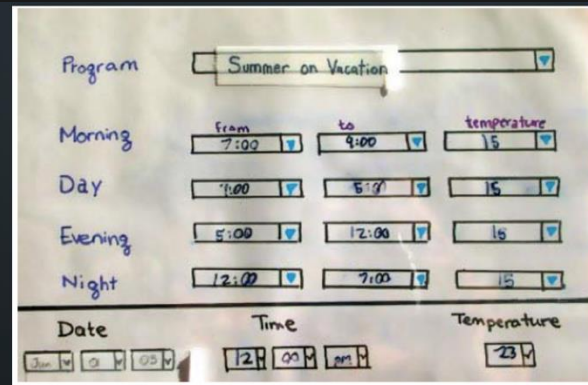 Program Summer on Vacation
from to temperature
Morning 7:00 9:00 15
Day 9:00 5:00 15
Evening 5:00 12:00 15
Night 12:00 7:00 15
Date Time Temperature
Jan 01 05 12 00 pm 23